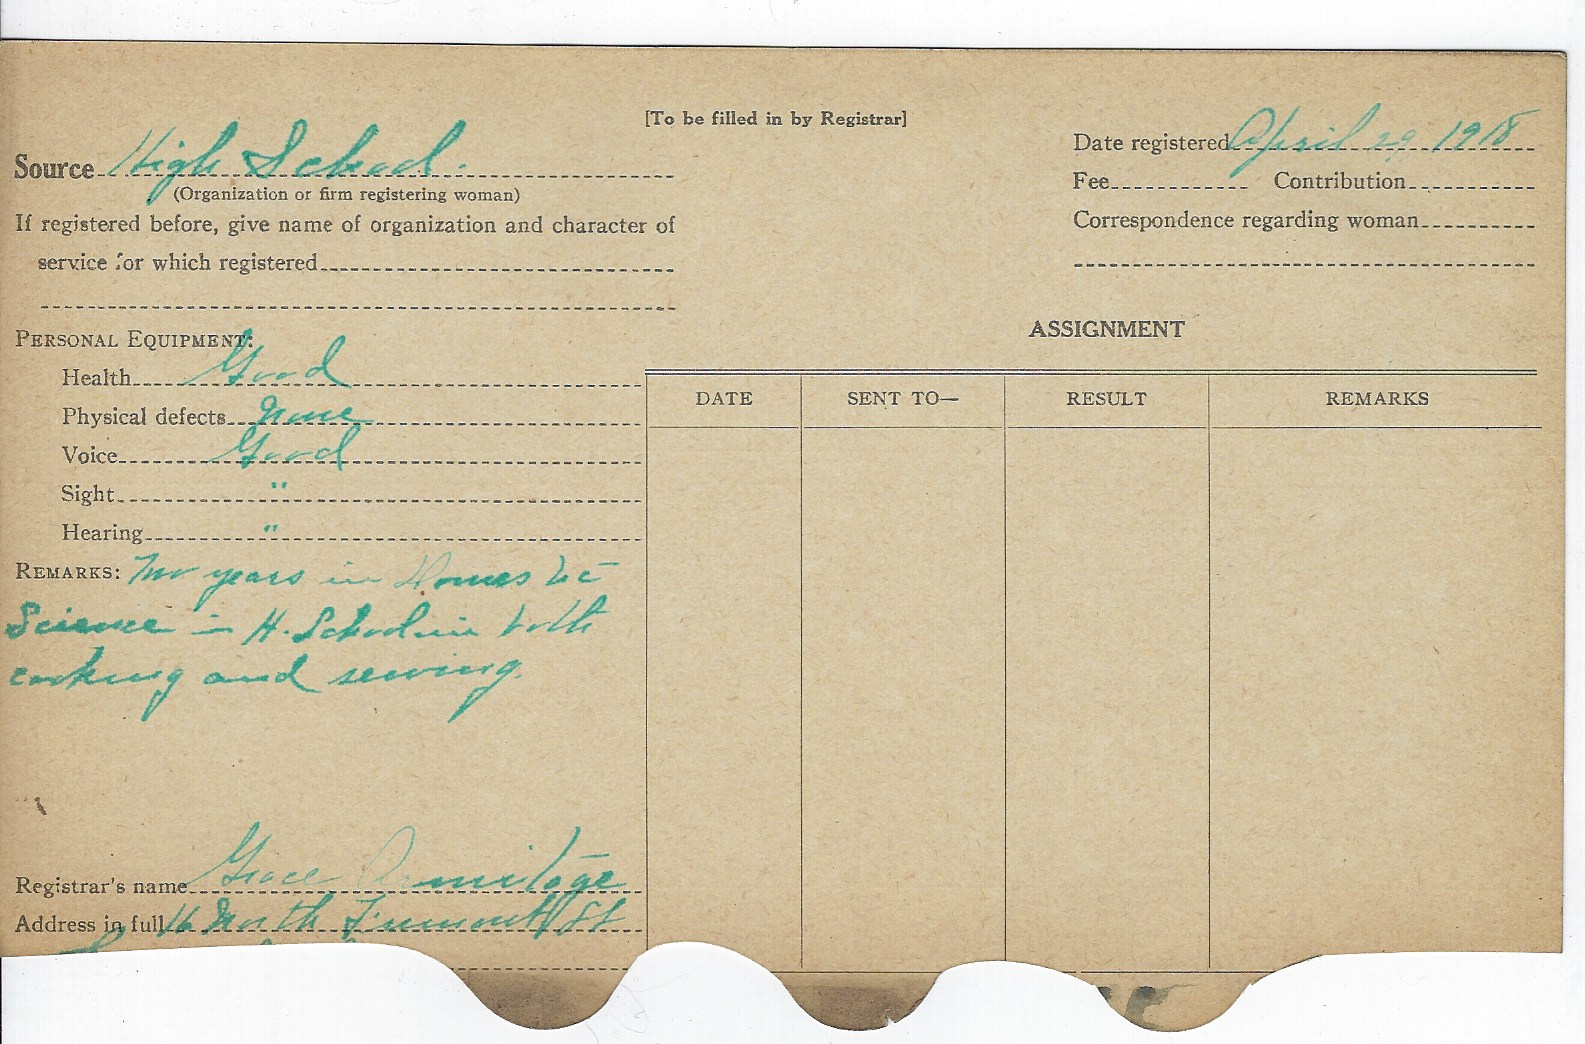 [To be filled in by Registrar]
Source High School.
(Organization or firm registering woman)
If registered before, give name of organization and character of
service for which registered
Date registered April 29, 1918
Fee Contribution
Correspondence regarding woman
PERSONAL EQUIPMENT:
Health Good
Physical defects None
Voice Good
Sight "
Hearing "
REMARKS: Two years in Domestic
Science in H. School in both
cooking and sewing.
Registrar's name Grace Armitage
Address in full 16 North Fremont St
ASSIGNMENT
DATE SENT TO— RESULT REMARKS